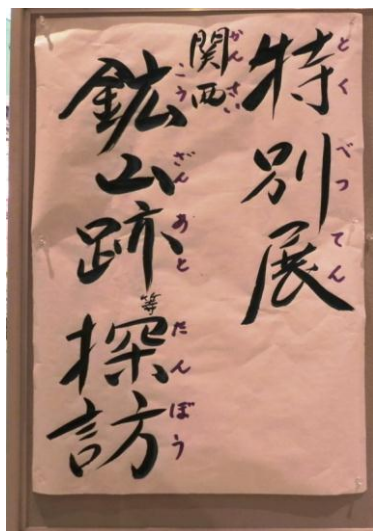 特別展
とくべつてん
関西
かんさい
鉱山跡等探訪
こうざんあとたんぼう